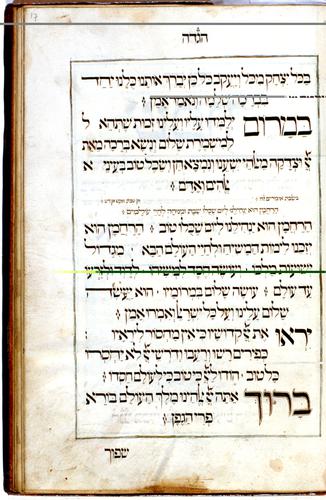 17
הגדה
בכל יצחק מכל ויעקב כל כן יברך אותנו כלנו יחד
בברכה שלמה ונאמר אמן :
במרום ילמדו עליו ועלינו זכות שתהא ל
למשמרת שלום ונשא ברכה מאת
וצדקה ישענו ונמצא חן ושכל טוב בעיני א
ואדם :
בשבת אומרים זה :
הרחמן הוא ינחילנו ליום שכלו שבת ומנוחה לחיי העולמים :
הרחמן הוא ינחילנו ליום שכלו טוב : הרחמן הוא
יזכנו לימות המשיח ולחיי העולם הבא : מגדול
ישועות מלכו ועושה חסד למשיחו לדוד ולזרעו
עד עולם : עושה שלום במרומיו הוא יעשה
שלום עלינו ועל כל ישראל ואמרו אמן :
יראו את קדושיו כי אין מחסור ליראיו :
כפירים רשו ורעבו ודרשי לא יחסרו
כל טוב : הודו כי טוב כי לעולם חסדו :
ברוך אתה אלהינו מלך העולם בורא
פרי הגפן :
שפוך